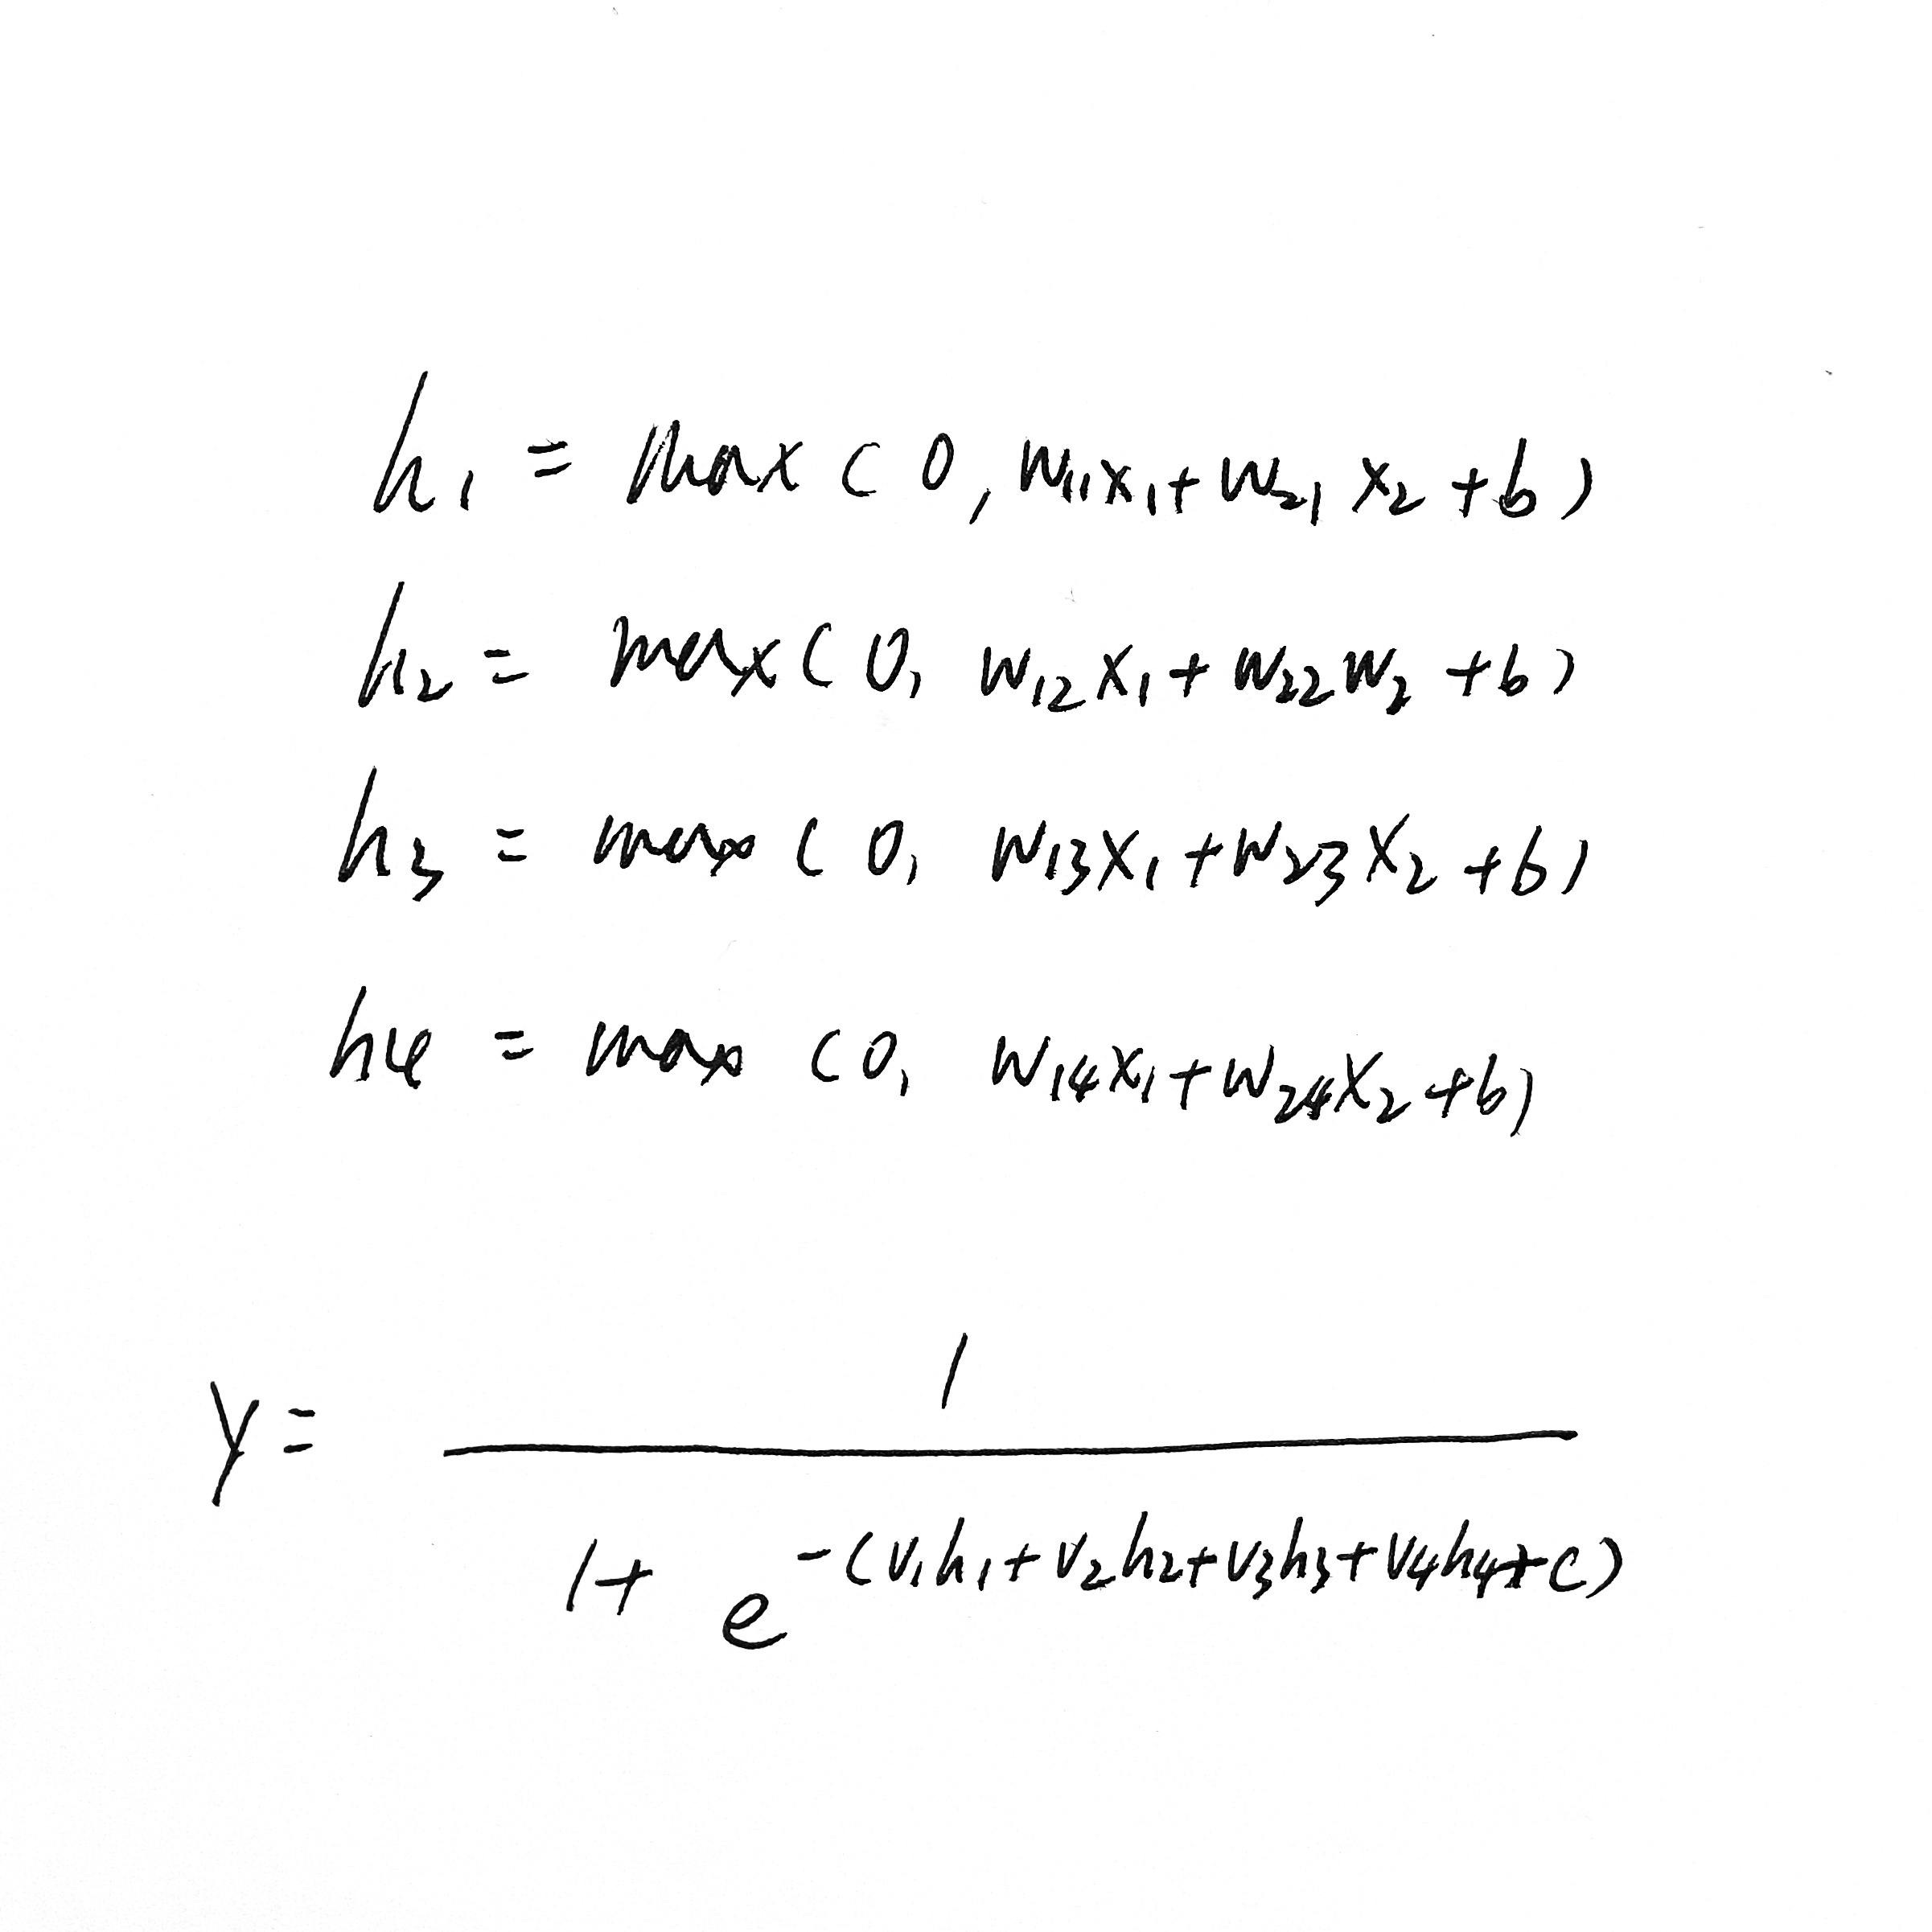 h₁ = max(0, w₁₁x₁+w₂₁x₂+b)
h₂ = max(0, w₁₂x₁+w₂₂w₂+b)
h₃ = max(0, w₁₃x₁+w₂₃x₂+b)
h₄ = max(0, w₁₄x₁+w₂₄x₂+b)
y = 1 / (1+e^-(v₁h₁+v₂h₂+v₃h₃+v₄h₄+c))